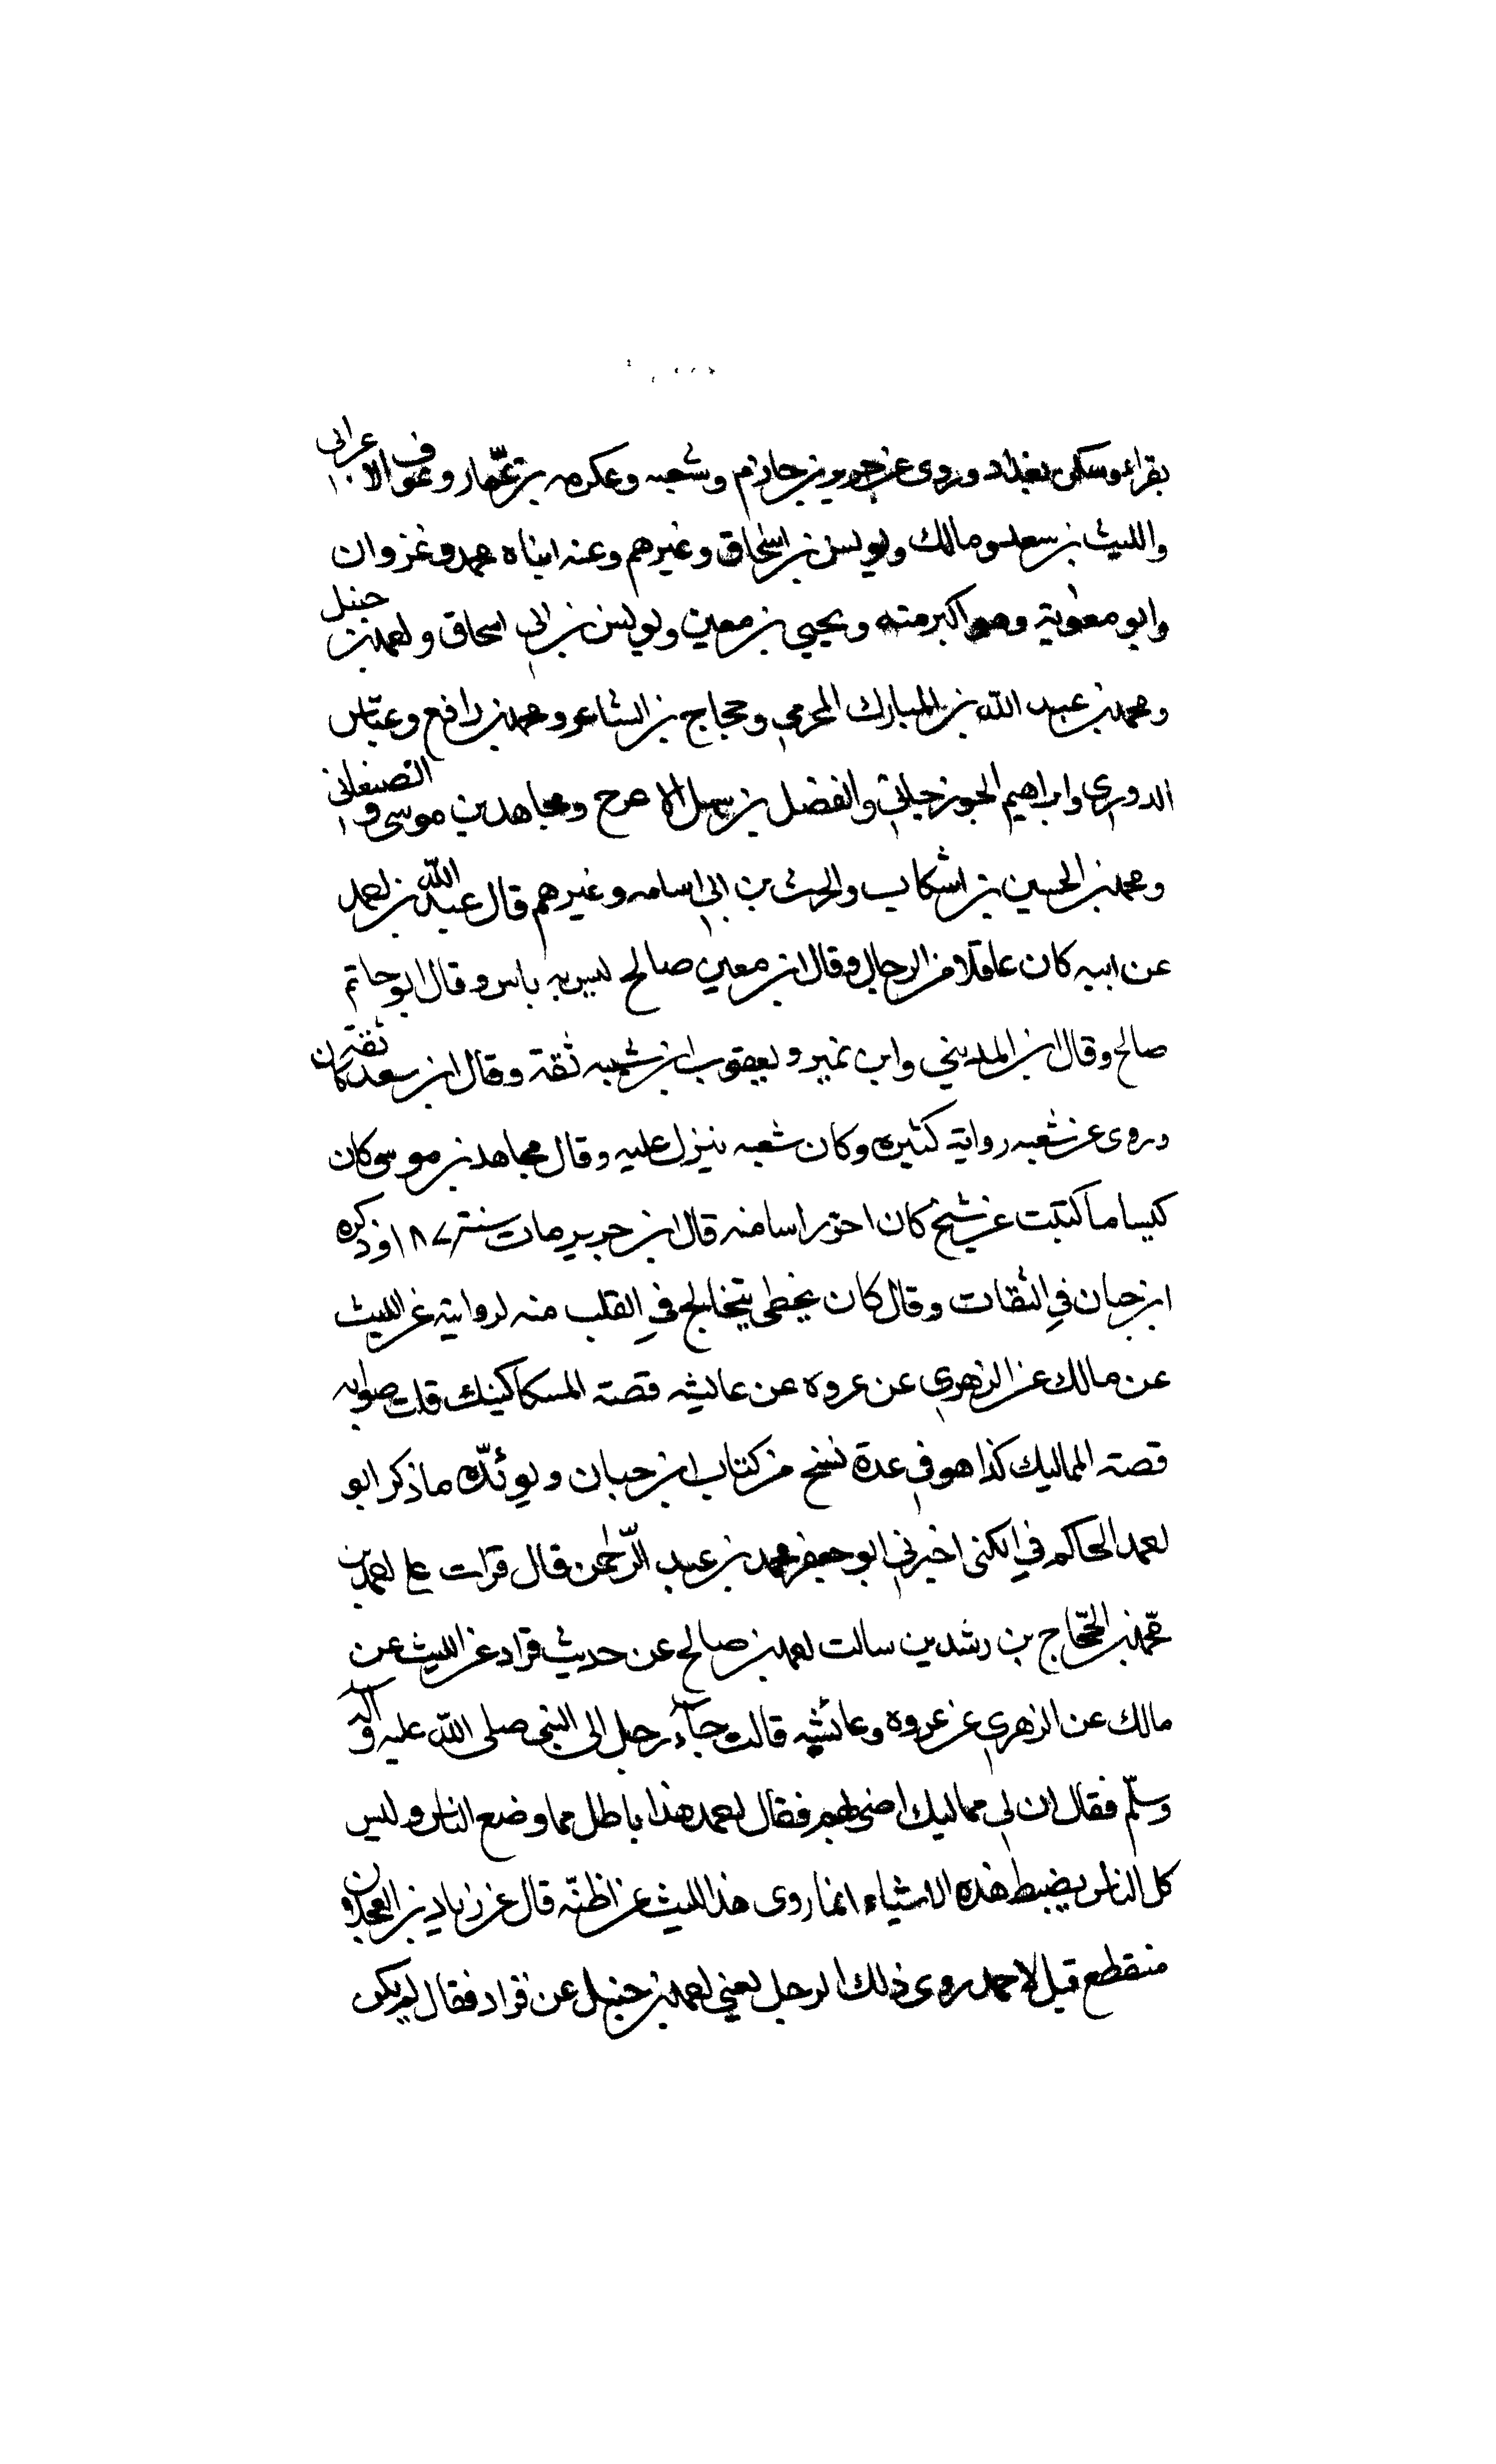 بقراد وسكن بغداد وروى عن جرير بن حازم وشعبه وعكرمه بن عمّار وعوف الاعرابي
والليث بن سعد ومالك ويونس بن اسحاق وغيرهم وعنه ابناه محمد وغزوان
وابو معوية وهو اكبر منه ويحيى بن معين ويونس بن ابي اسحاق واحمد بن حنبل
ومحمد بن عبد الله بن المبارك المخرمي وحجاج بن الشاعر ومحمد بن رافع وعباس
الدوري وابراهيم الجوزجاني والفضل بن سهل الاعرج ومجاهد بن موسى و الصنعاني
ومحمد بن الحسين بن اشكاب والحرث بن ابي اسامه وغيرهم قال عبد الله بن احمد
عن ابيه كان عاقلا من الرجال وقال ابن معين صالح ليس به باس وقال ابو حاتم
صالح وقال ابن المديني وابن نمير ويعقوب ابن شيبه ثقة وقال ابن سعد كان ثقة
وروى عن شعبه رواية كثيره وكان شعبه ينزل عليه وقال مجاهد بن موسى كان
كيسا ما كتبت عن شيخ كان احر راسا منه قال ابن جرير مات سنة ١٨٧ وذكره
ابن حبان في الثقات وقال كان يخطى يتخالج في القلب منه لروايته عن الليث
عن مالك عن الزهري عن عروه عن عايشه قصة المسكاكينك قلت صوابه
قصة المماليك كذا هو في عدة نسخ من كتاب ابن حبان ويوئدّه ما ذكر ابو
احمد الحاكم في الكنى اخبرني ابو جعفر محمد بن عبد الرّحمن قال قرات على احمد بن
محمد بن الحجّاج بن رشدين سالت احمد بن صالح عن حديث قراد عن الليث عن
مالك عن الزهري عن عروه وعائشه قالت جآء رجل الى النبي صلى الله عليه وآله
وسلّم فقال ان لي مماليك اضربهم فقال احمد هذا باطل مما وضع الناس وليس
كل الناس يضبط هذه الاشياء انما روى هذا الليث عن اظنّه قال عن زياد بن العجلان
منقطع قيل لاحمد روى ذلك الرجل يعني احمد بن حنبل عن قراد فقال لم يكن